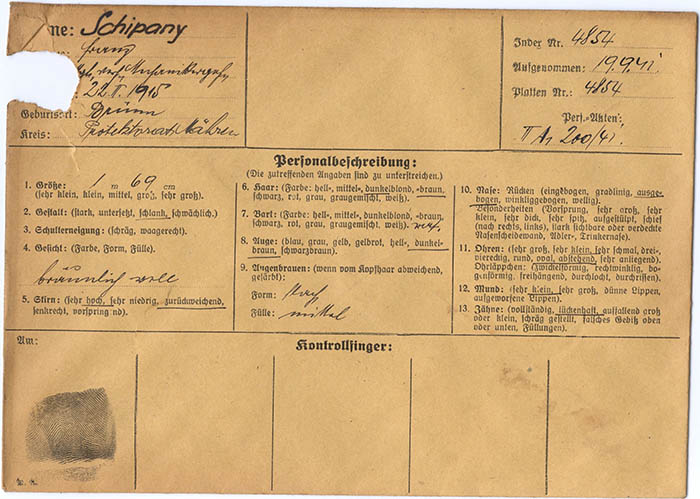 ne: Schipany
Franz
22.II.1915
Geburtsort: Brünn
Kreis: Protektorat Mähren
Index Nr. 4854
Aufgenommen: 19.9.41
Platten Nr.: 4854
Pers.-Akten:
200/41
Personalbeschreibung:
(Die zutreffenden Angaben sind zu unterstreichen.)
1. Größe: 1 m 69 cm
(sehr klein, klein, mittel, groß, sehr groß).
2. Gestalt: (stark, untersetzt, schlank, schwächlich.)
3. Schulterneigung: (schräg, waagerecht.)
4. Gesicht: (Farbe, Form, Fülle).
bräunlich voll
5. Stirn: (sehr hoch, sehr niedrig, zurückweichend,
senkrecht, vorspringend).
6. Haar: (Farbe: hell-, mittel-, dunkelblond, -braun,
schwarz, rot, grau, graugemischt, weiß).
7. Bart: (Farbe: hell-, mittel-, dunkelblond, -braun,
schwarz, rot, grau, graugemischt, weiß).
8. Auge: (blau, grau, gelb, gelbrot, hell-, dunkel-
braun, schwarzbraun).
9. Augenbrauen: (wenn vom Kopfhaar abweichend,
gefärbt):
Form:
Fülle: mittel
10. Nase: Rücken (eingebogen, gradlinig, ausge-
bogen, winkliggebogen, wellig).
Besonderheiten (Vorsprung, sehr groß, sehr
klein, sehr dick, sehr spitz, aufgestülpt, schief
(nach rechts, links), stark sichtbare oder verdeckte
Nasenscheidewand, Adler-, Trinkernase).
11. Ohren: (sehr groß, sehr klein, sehr schmal, drei-,
viereckig, rund, oval, abstehend, sehr anliegend).
Ohrläppchen: (zwickelförmig, rechtwinklig, bo-
genförmig, freihängend, durchlocht, durchrissen).
12. Mund: (sehr klein, sehr groß, dünne Lippen,
aufgeworfene Lippen).
13. Zähne: (vollständig, lückenhaft, auffallend groß
oder klein, schräg gestellt, falsches Gebiß oben
oder unten, Füllungen).
Am:
Kontrollfinger: